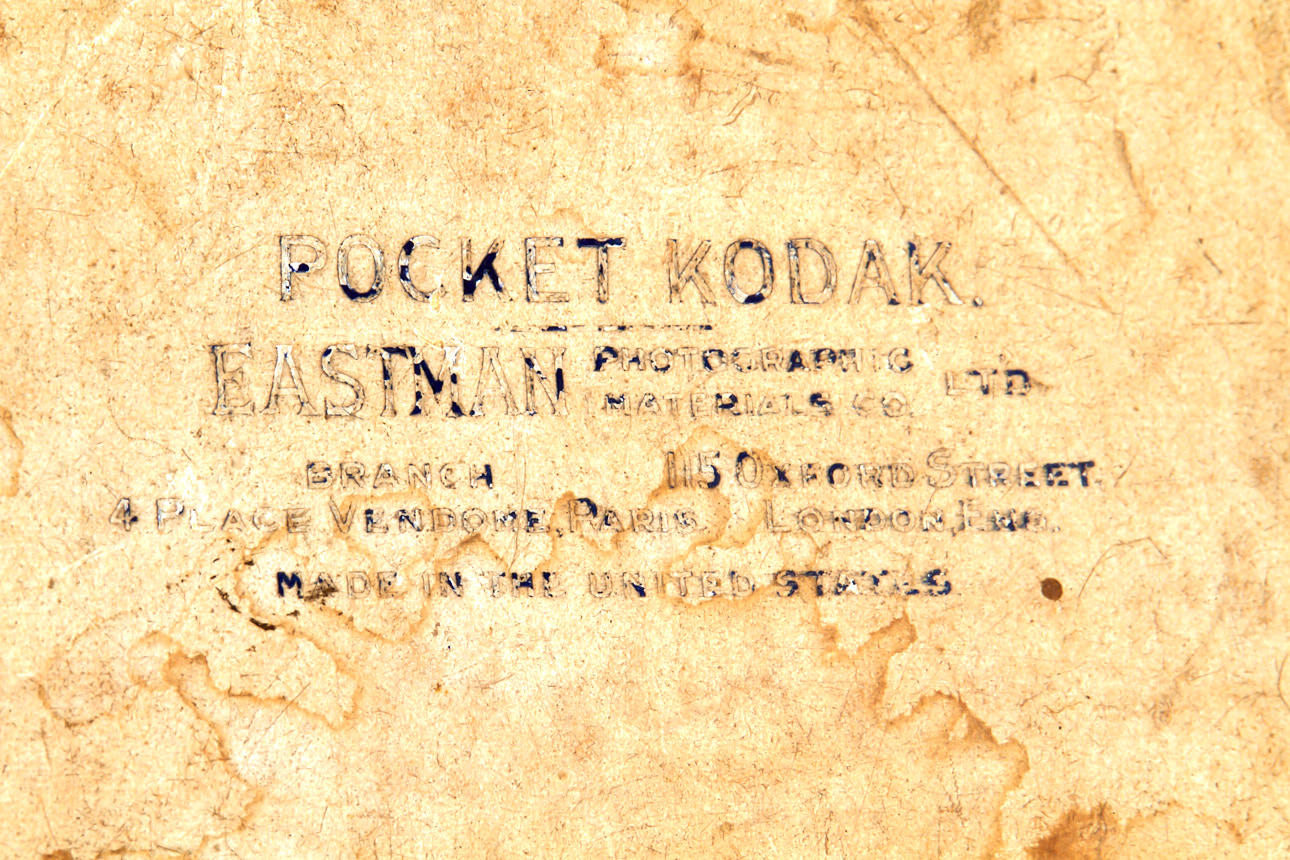 POCKET KODAK.
EASTMAN PHOTOGRAPHIC MATERIALS CO. LTD
BRANCH 115 OXFORD STREET.
4 PLACE VENDOME, PARIS. LONDON, ENG.
MADE IN THE UNITED STATES